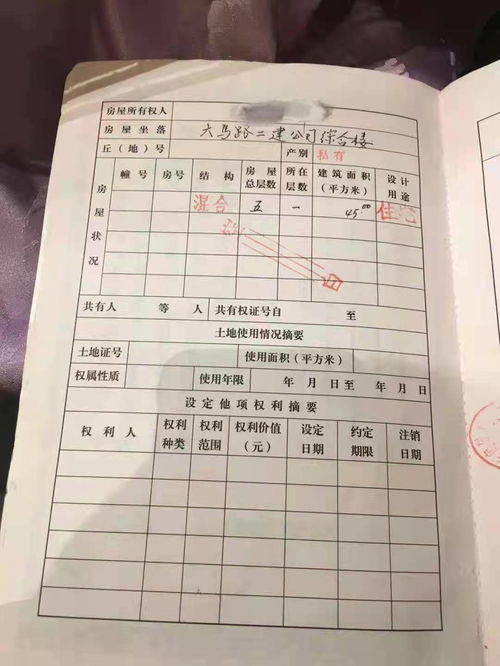 房屋所有权人
房屋坐落 六马路二建公司综合楼
丘（地）号 产别 私有
房屋状况 幢号 房号 结构 房屋总层数 所在层数 建筑面积（平方米） 设计用途
混合 五 一 45.00 住宅
共有人 等 人 共有权证号自 至
土地使用情况摘要
土地证号 使用面积（平方米）
权属性质 使用年限 年 月 日至 年 月 日
设定他项权利摘要
权利人 权利种类 权利范围 权利价值（元） 设定日期 约定期限 注销日期